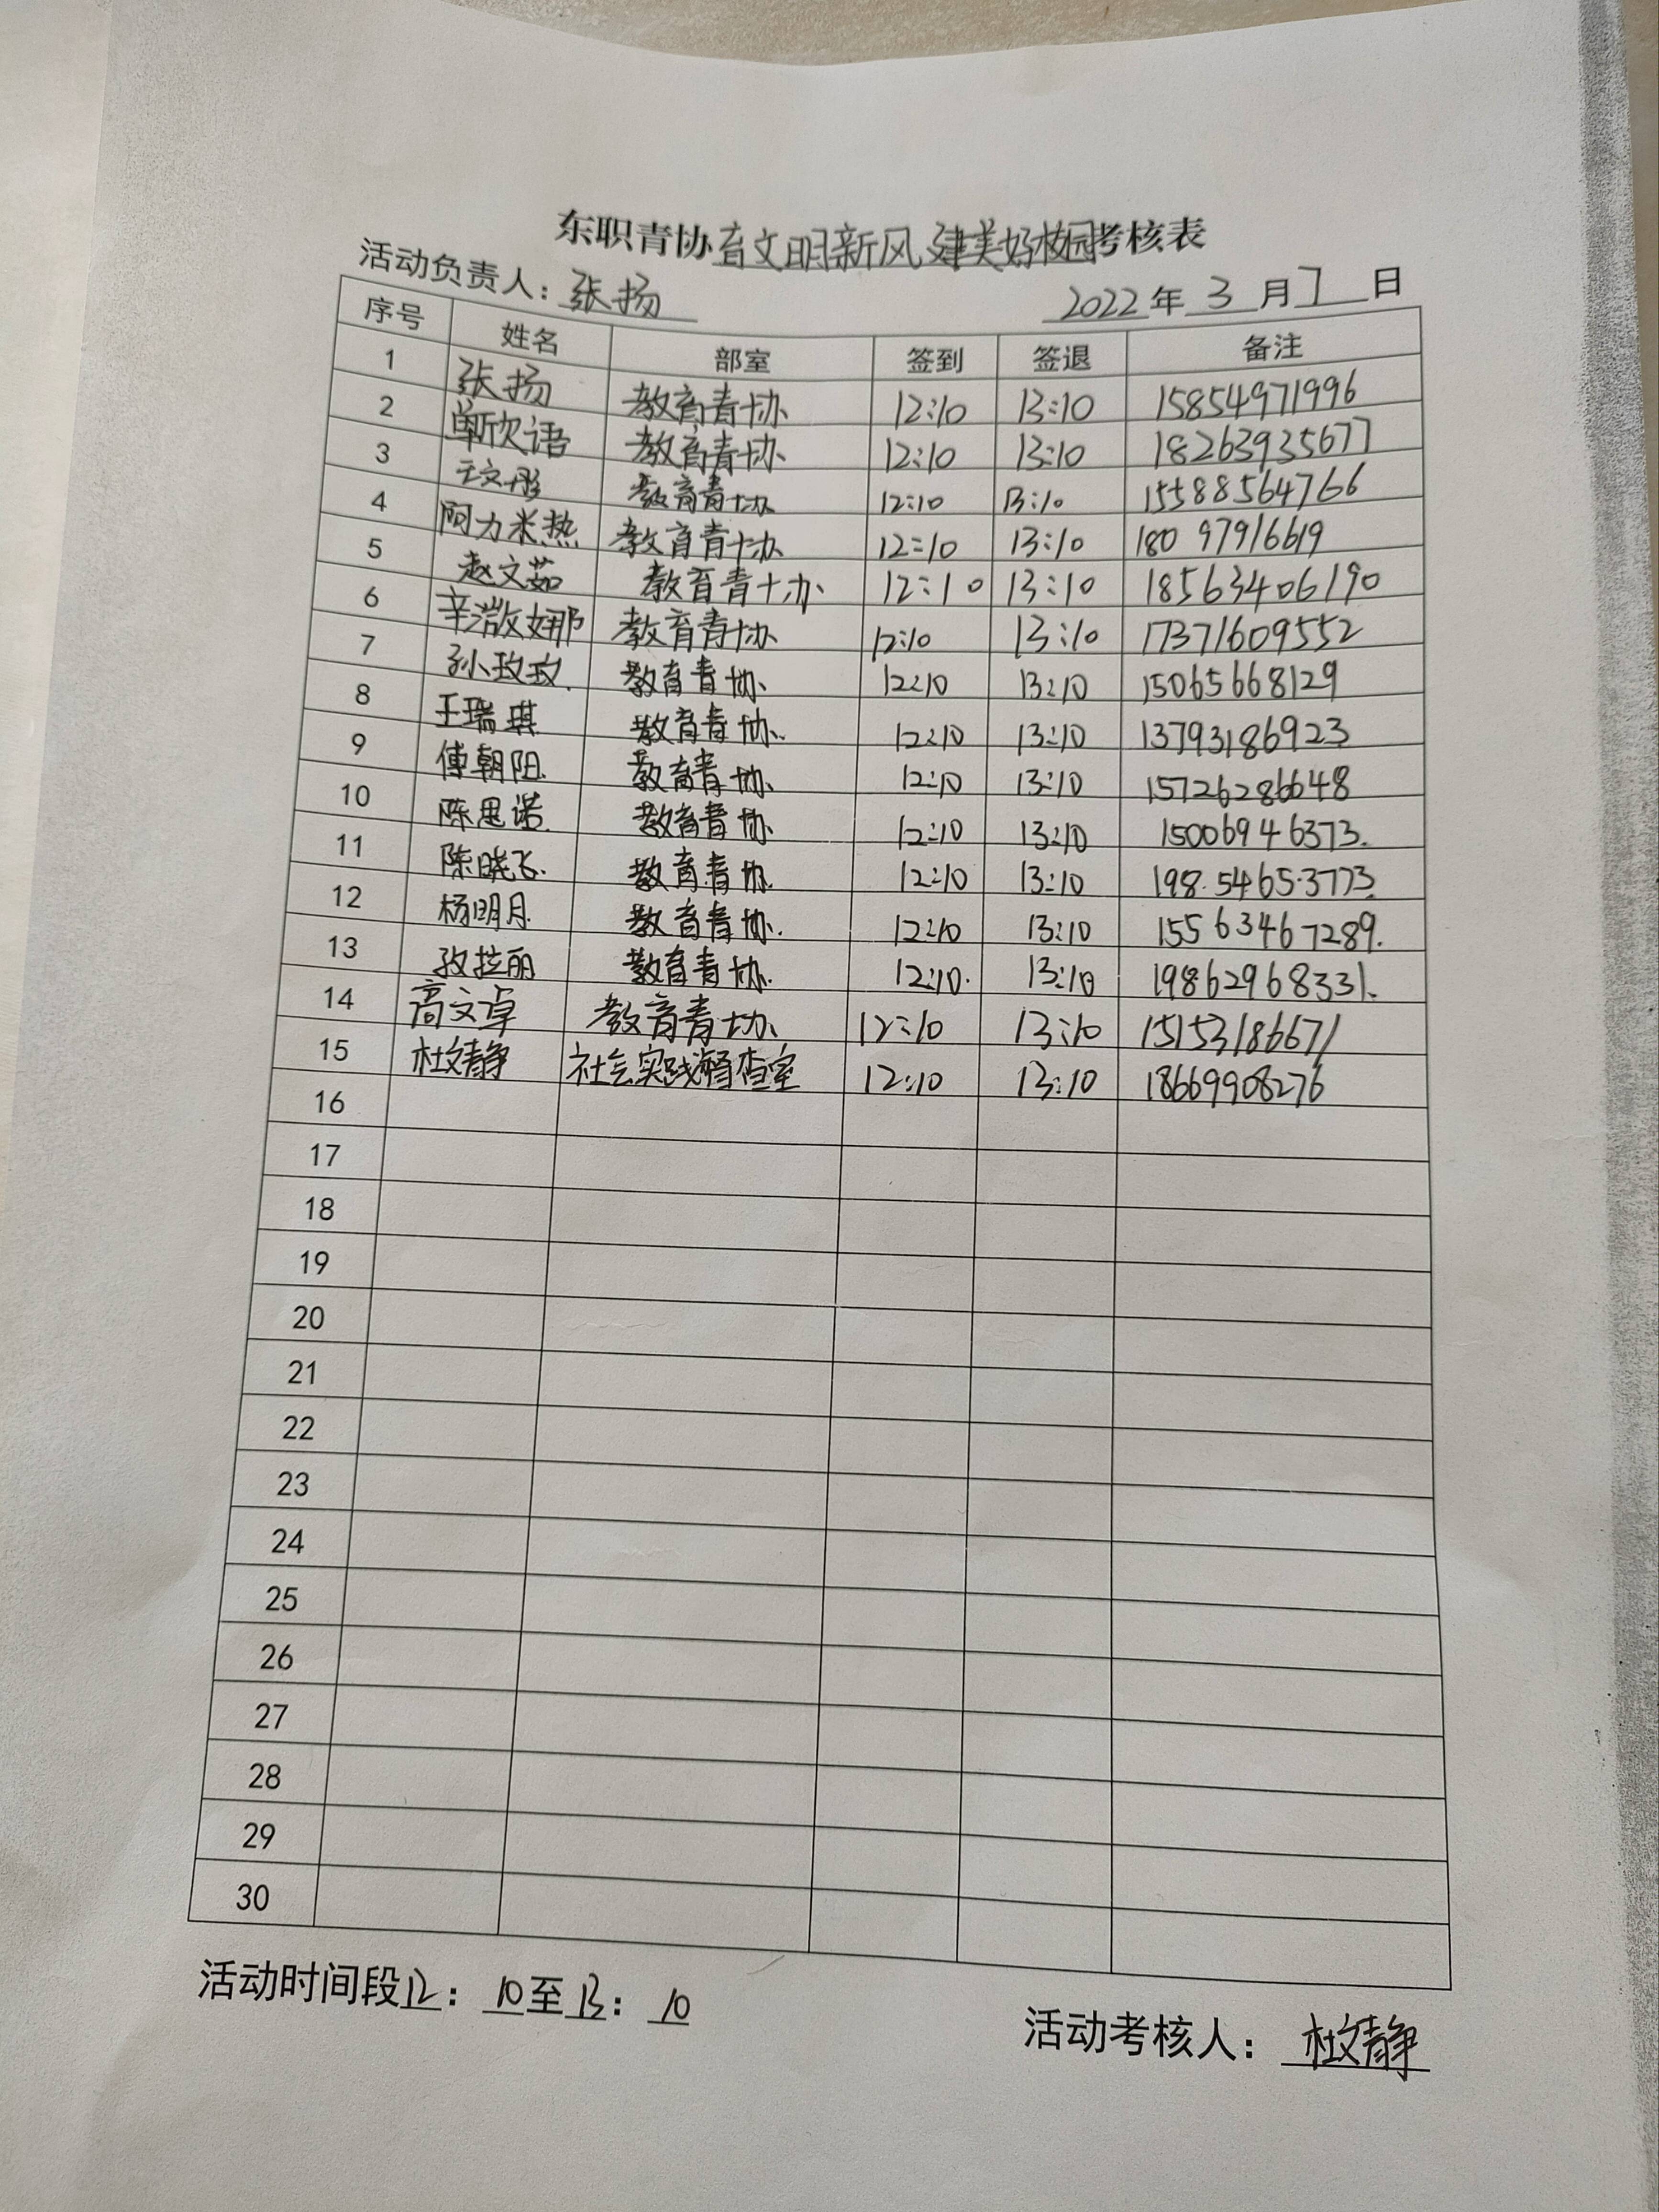 东职青协育文明新风 建美好校园考核表
活动负责人：张扬 2022年3月7日
序号 姓名 部室 签到 签退 备注
1 张扬 教育青协 12:10 13:10 15854971996
2 单欣语 教育青协 12:10 13:10 18263935677
3 王文彤 教育青协 12:10 13:10 15588564766
4 阿力米热 教育青协 12:10 13:10 180 97916619
5 赵文茹 教育青协 12:10 13:10 18563406190
6 辛潋娜 教育青协 12:10 13:10 17371609552
7 孙玫玫. 教育青协 12:10 13:10 15065668129
8 王瑞琪 教育青协. 12:10 13:10 13793186923
9 傅朝阳. 教育青协 12:10 13:10 15726286648
10 陈思诺. 教育青协 12:10 13:10 15006946373.
11 陈晓飞. 教育青协. 12:10 13:10 198.5465.3773.
12 杨明月. 教育青协. 12:10 13:10 15563467289.
13 孜拉丽 教育青协. 12:10. 13:10 19862968331.
14 高文卓 教育青协 12:10 13:10 15153186671
15 杜文静 社会实践督查室 12:10 13:10 18669908276
16
17
18
19
20
21
22
23
24
25
26
27
28
29
30
活动时间段12：10至13：10
活动考核人：杜文静